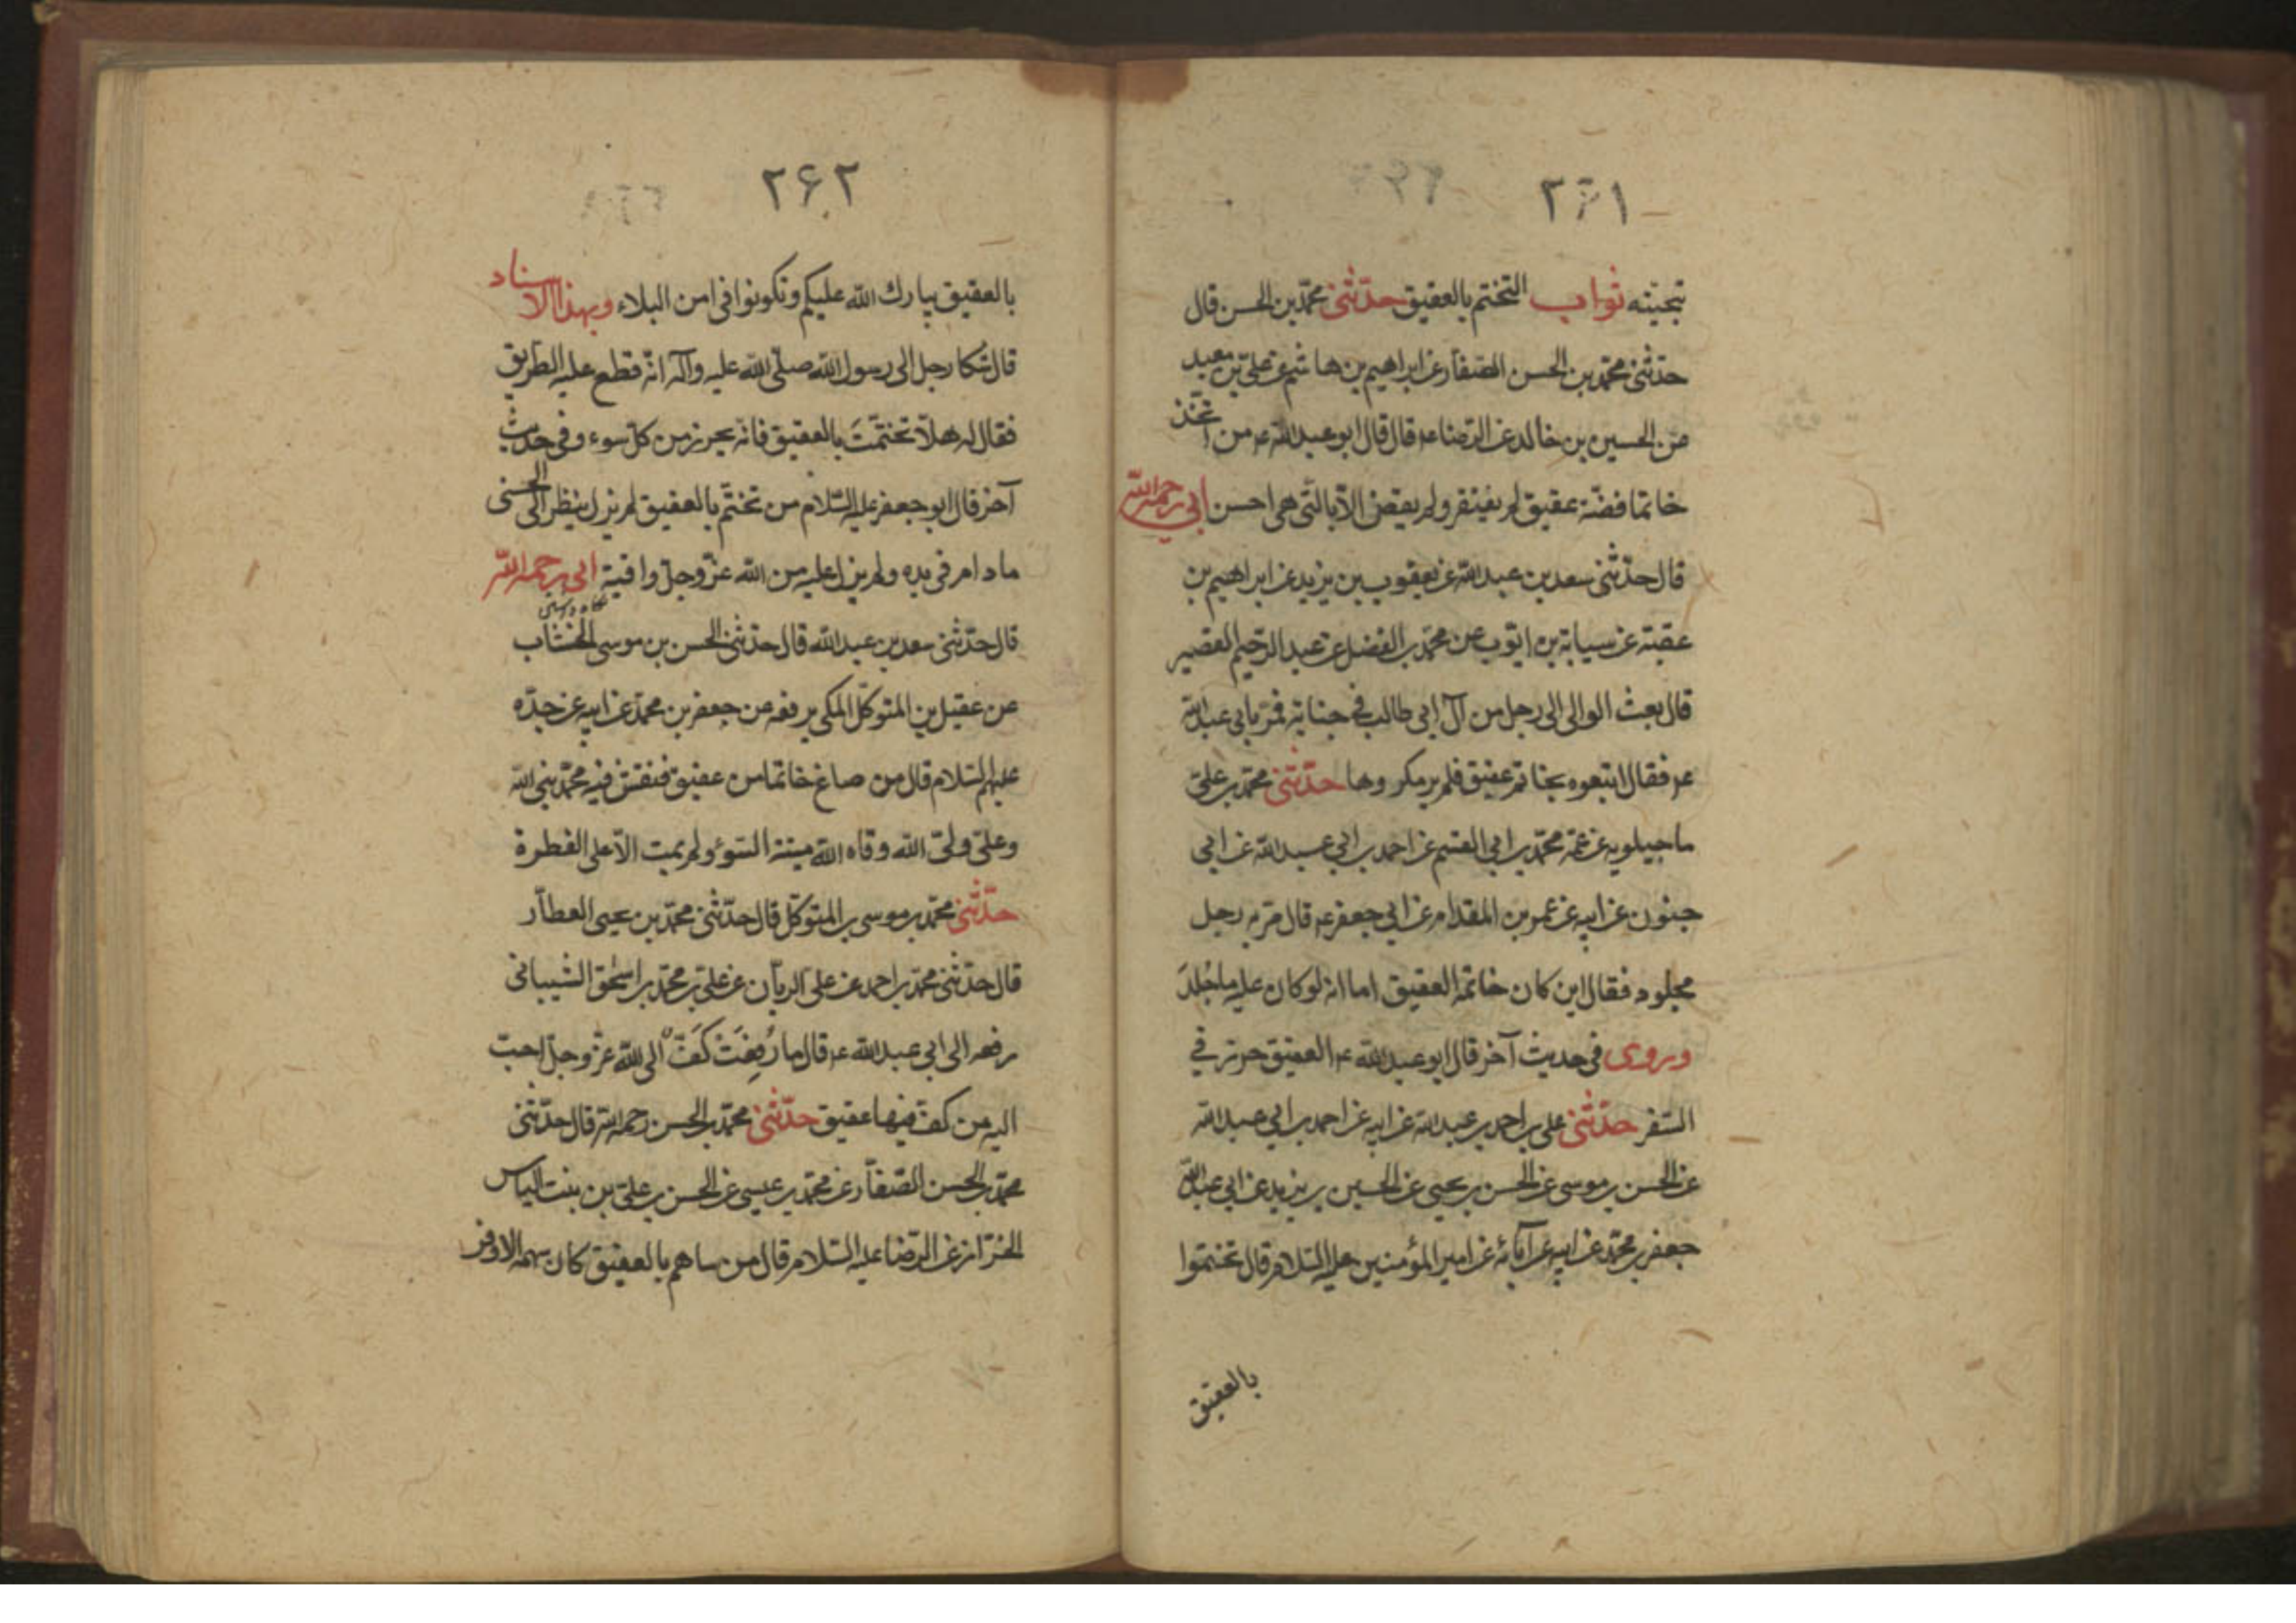 ٢٦١
تجيته ثواب التختم بالعقيق حدثنى محمد بن الحسن قال
حدثنى محمد بن الحسن الصفار عن ابراهيم بن هاشم عن على بن معبد
عن الحسين بن خالد عن الرضا ع قال قال ابو عبد الله ع من اتخذ
خاتما فضة عقيق لم يفتقر ولم يقض الا بالتى هى احسن ابى رحمه الله
قال حدثنى سعد بن عبد الله عن يعقوب بن يزيد عن ابراهيم بن
عقبة عن سيابة بن ايوب عن محمد بن الفضل عن عبد الرحيم القصير
قال بعث الوالى الى رجل من آل ابى طالب فى جناية فمر بابى عبد الله
ع فقال اتبعوه بخاتم عقيق فلم ير مكروها حدثنى محمد بن على
ماجيلويه عن عمه محمد بن ابى القسم عن احمد بن ابى عبد الله عن ابى
جنون عن ابيه عن عمر بن المقدام عن ابى جعفر ع قال مر به رجل
مجلود فقال اين كان خاتمه العقيق اما انه لو كان عليه ما جُلِدَ
وروى فى حديث آخر قال ابو عبد الله ع العقيق حرز فى
السفر حدثنى على بن احمد بن عبد الله عن ابيه عن احمد بن ابى عبد الله
عن الحسن بن موسى عن الحسن بن يحيى عن الحسين بن يزيد عن ابى عبد الله
جعفر بن محمد عن ابيه عن آبائه عن امير المؤمنين عليه السلام قال تختموا
بالعقيق
٢۶٢
بالعقيق يبارك الله عليكم وتكونوا فى امن البلاء وبهذا الاسناد
قال شكا رجل الى رسول الله صلّى الله عليه وآله انّه قطع عليه الطريق
فقال له هلاّ تختّمتَ بالعقيق فانه يحرز من كلّ سوء وفى حديث
آخر قال ابو جعفر عليه السّلام من تختّم بالعقيق لم يزل ينظر الى الحسنى
مادام فى يده ولم يزل عليه من الله عزّ وجلّ واقية ابى رحمه الله
قال حدّثنى سعد بن عبد الله قال حدّثنى الحسن بن موسى الخشّاب
عن عقيل بن المتوكّل المكى يرفعه عن جعفر بن محمد عن ابيه عن جدّه
عليهم السّلام قال من صاغ خاتما من عقيق فنقش فيه محمّد نبى الله
وعلىّ ولىّ الله وقاه الله ميتة السّوء ولم يمت الاّ على الفطرة
حدّثنى محمّد بن موسى بن المتوكّل قال حدّثنى محمّد بن يحيى العطاّر
قال حدّثنى محمّد بن احمد عن على الريّان عن علىّ بن محمّد بن اسحق الشيبانى
رفعه الى ابى عبد الله ع قال ما رُفِعَتْ كَفّ الى الله عزّ وجلّ احبّ
اليه من كفّ فيها عقيق حدّثنى محمّد بن الحسن رحمه الله قال حدّثنى
محمّد بن الحسن الصّفاّر عن محمّد بن عيسى عن الحسن بن علىّ بن بنت الياس
الخزّاز عن الرّضا عليه السّلام قال من ساهم بالعقيق كان سهمه الاوفر